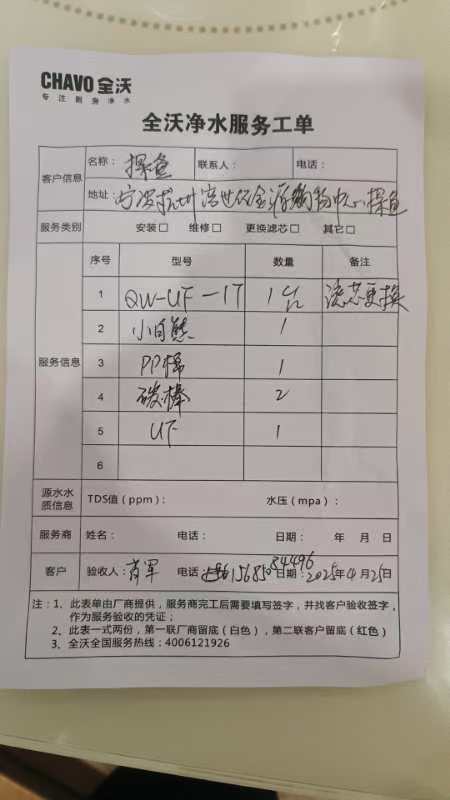 CHAVO 全沃
专注厨房净水
全沃净水服务工单
客户信息 名称: 探鱼 联系人: 电话:
地址: 宁波杭州湾世纪金源购物中心探鱼
服务类别 安装□ 维修□ 更换滤芯□ 其它□
服务信息 序号 型号 数量 备注
1 QW-UF-1T 1台 滤芯更换
2 小白熊 1
3 PP棉 1
4 碳棒 2
5 UF 1
6
源水水质信息 TDS值(ppm): 水压(mpa):
服务商 姓名: 电话: 日期: 年 月 日
客户 验收人: 电话: 日期: 2025年4月25日
注:1、此表单由厂商提供,服务商完工后需要填写签字,并找客户验收签字,
作为服务验收的凭证;
2、此表一式两份,第一联厂商留底(白色),第二联客户留底(红色)
3、全沃全国服务热线:4006121926